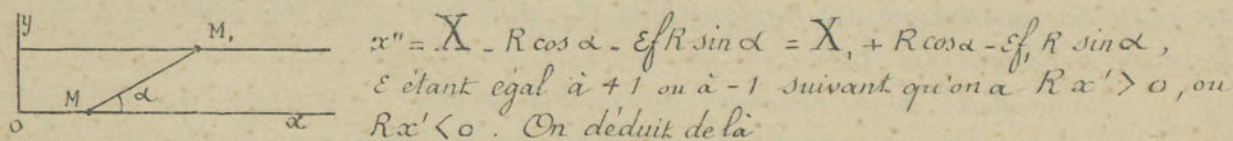 y
M₁
M
α
O
x
x'' = X - R cos α - εfR sin α = X₁ + R cos α - εf₁ R sin α,
ε étant égal à +1 ou à -1 suivant qu'on a Rx' > 0, ou
Rx' < 0. On déduit de là